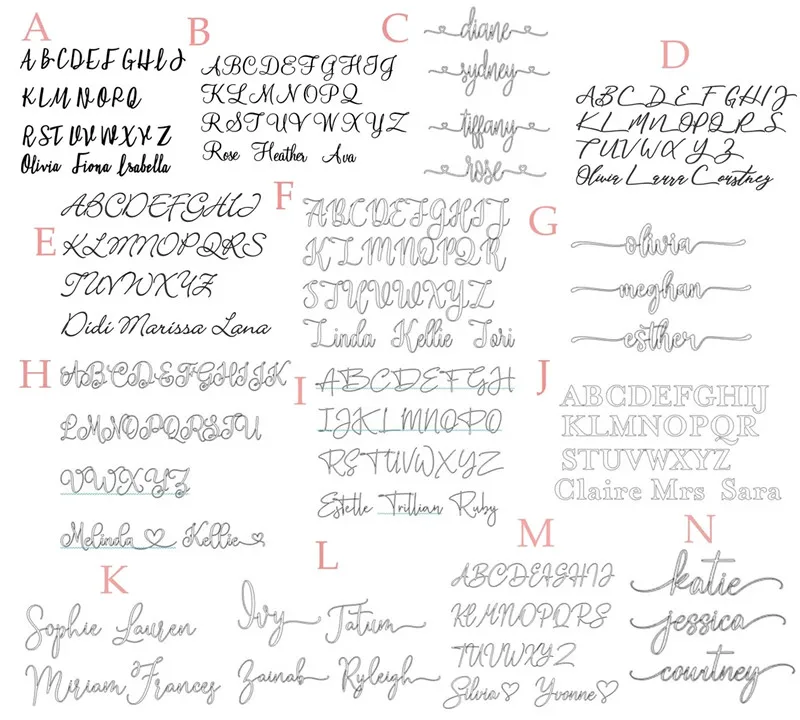 A
ABCDEFGHIJ
KLMNOPQ
RSTUVWXYZ
Olivia Fiona Isabella
B
ABCDEFGHIJ
KLMNOPQ
RSTUVWXYZ
Rose Heather Ava
C
diane
sydney
tiffany
rose
D
ABCDEFGHIJ
KLMNOPQRS
TUVWXYZ
Olivia Laura Courtney
E
ABCDEFGHIJ
KLMNOPQRS
TUVWXYZ
Didi Marissa Lana
F
ABCDEFGHIJ
KLMNOPQR
STUVWXYZ
Linda Kellie Tori
G
olivia
meghan
esther
H
ABCDEFGHIJK
LMNOPQRSTU
VWXYZ
Melinda Kellie
I
ABCDEFGH
IJKLMNOPQ
RSTUVWXYZ
Estelle Trillian Ruby
J
ABCDEFGHIJ
KLMNOPQR
STUVWXYZ
Claire Mrs Sara
K
Sophie Lauren
Miriam Frances
L
Ivy Tatum
Zainab Ryleigh
M
ABCDEFGHIJ
KLMNOPQRS
TUVWXYZ
Silvia Yvonne
N
katie
jessica
courtney